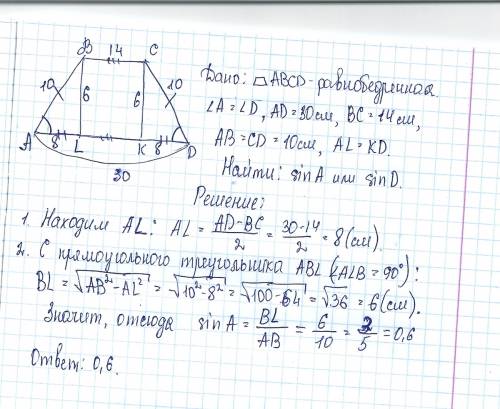 B 14 C
10 10
6 6
A 8 L K 8 D
30
Дано: ABCD - равнобедренная.
∠A = ∠D, AD = 30 см, BC = 14 см,
AB = CD = 10 см, AL = KD.
Найти: sin A или sin D.
Решение:
1. Находим AL: AL = (AD-BC)/2 = (30-14)/2 = 8 (см).
2. С прямоугольного треугольника ABL (∠ALB = 90°):
BL = √(AB²-AL²) = √(10²-8²) = √(100-64) = √36 = 6 (см).
Значит, отсюда sin A = BL/AB = 6/10 = 3/5 = 0,6
Ответ: 0,6.